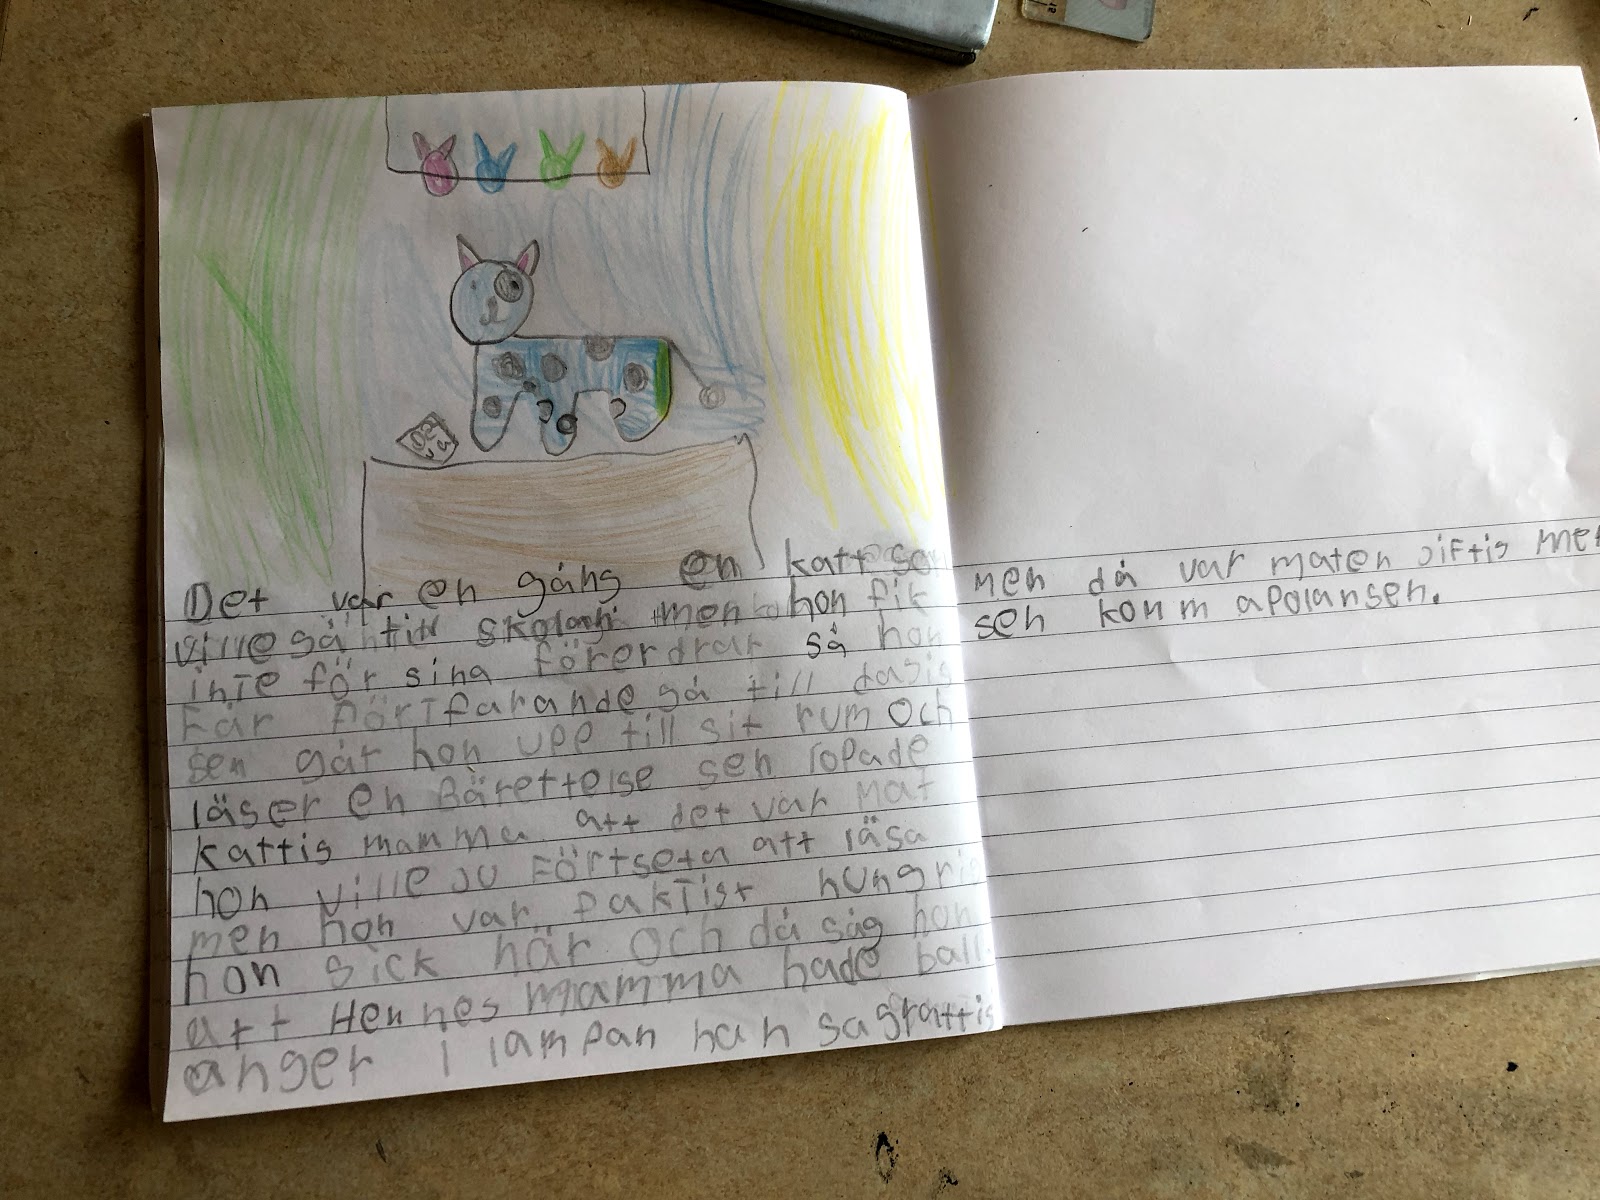 Det var en gång en katt som
ville gå till skolan men hon fik
inte för sina förerdrar så hon
Får förtfarande gå till dagis
sen går hon upp till sit rum och
läser en Bärettelse sen ropade
kattis mamma att det var mat
hon ville ju Förtseta att läsa
men hon var faktist hungrig
hon gick när och då såg hon
att Hennes mamma hade ball
anger i lampan han sa grattis
men då var maten jiftig met
sen komm apolansen.